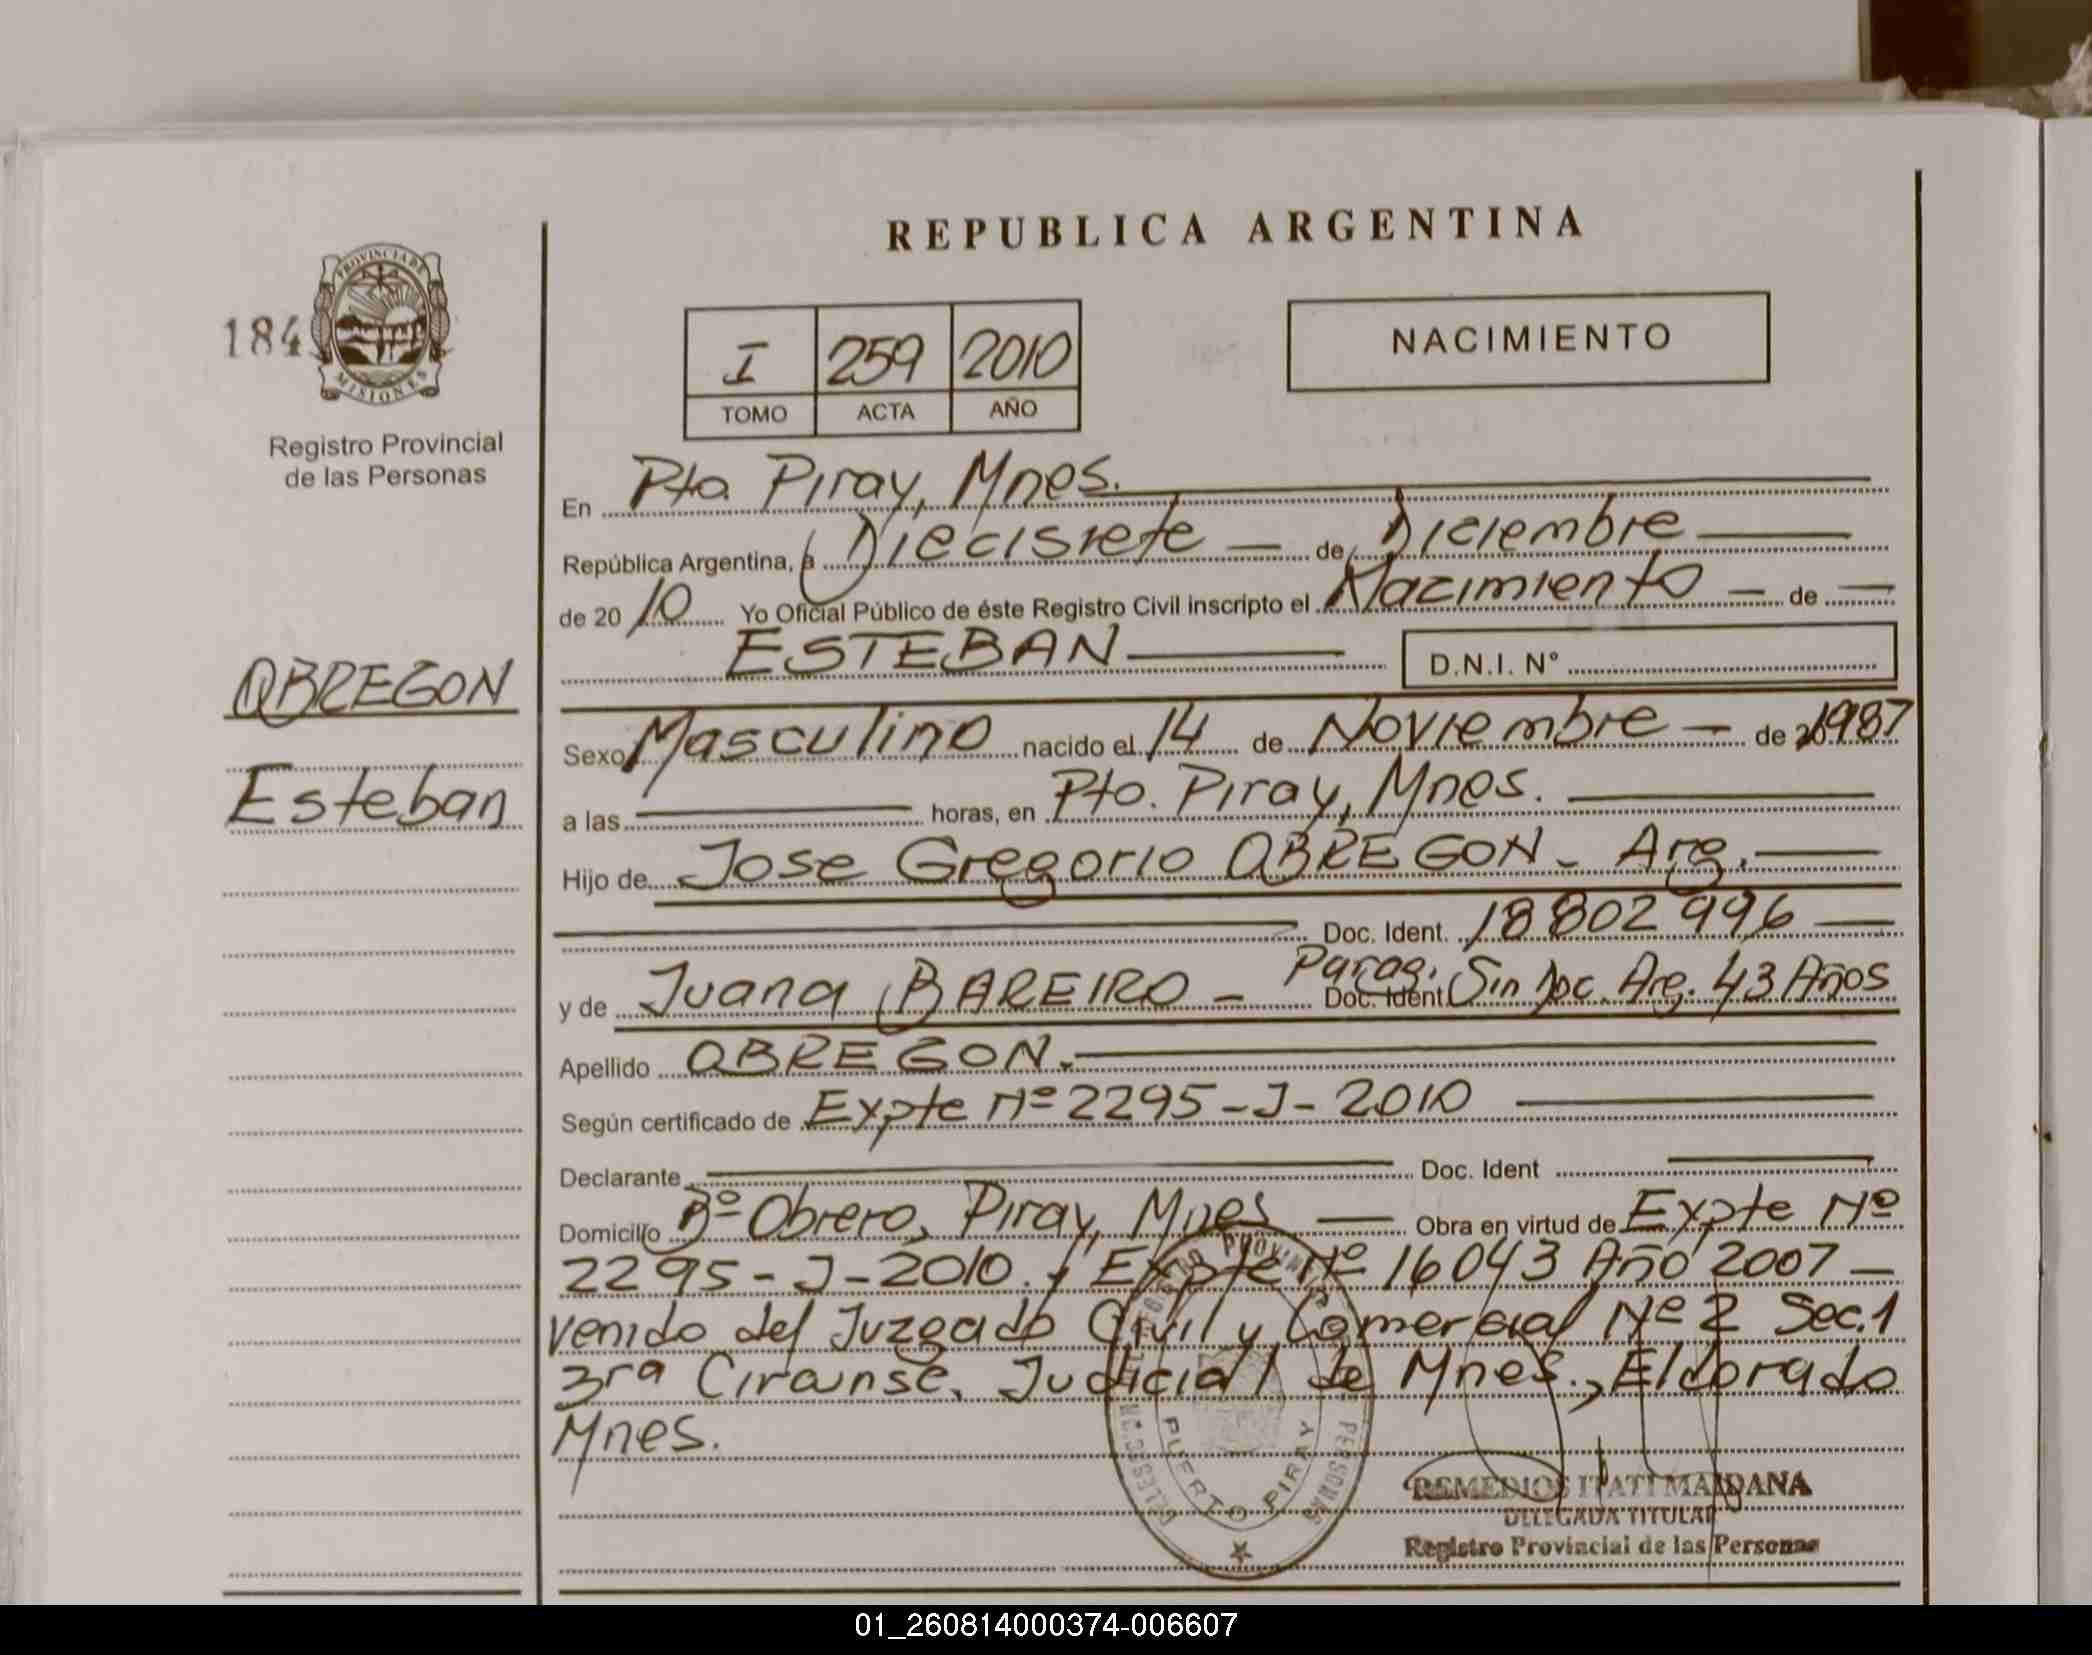 REPUBLICA ARGENTINA
184
PROVINCIA DE
MISIONES
Registro Provincial
de las Personas
I 259 2010
TOMO ACTA AÑO
NACIMIENTO
En Pto. Piray, Mnes.
República Argentina, a Diecisiete — de Diciembre
de 20 10 Yo Oficial Público de éste Registro Civil inscripto el Nacimiento — de —
ESTEBAN D.N.I. N°
OBREGON
Esteban
Sexo Masculino nacido el 14 de Noviembre — de 1987
a las horas, en Pto. Piray, Mnes.
Hijo de Jose Gregorio OBREGON - Arg.
Doc. Ident. 18802996
y de Juana BAREIRO - Parag. Doc. Ident. Sin Doc. Arg. 43 Años
Apellido OBREGON.
Según certificado de Expte Nº 2295-J-2010
Declarante Doc. Ident
Domicilio Bº Obrero, Piray, Mnes — Obra en virtud de Expte Nº
2295-J-2010. y Expte Nº 16043 Año 2007 —
venido del Juzgado Civil y Comercial Nº 2 Sec. 1
3ra Circunsc. Judicial de Mnes., Eldorado
Mnes.
PUERTO PIRAY
REMEDIOS ITATI MAIDANA
DELEGADA TITULAR
Registro Provincial de las Personas
01_260814000374-006607